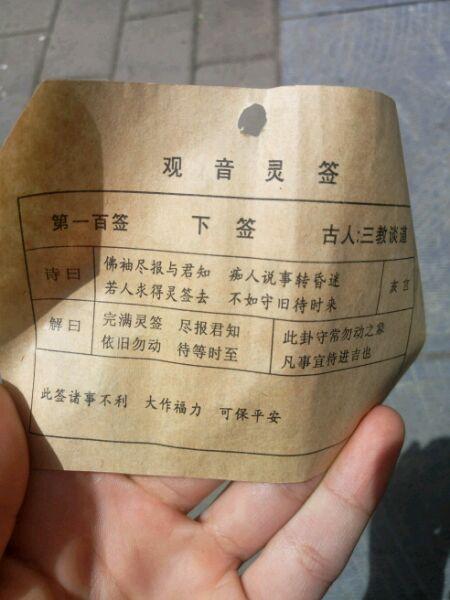 观音灵签
第一百签 下签 古人:三教谈道
诗曰
佛袖尽报与君知 痴人说事转昏迷
若人求得灵签去 不如守旧待时来
亥宫
解曰
完满灵签 尽报君知
依旧勿动 待等时至
此卦守常勿动之象
凡事宜待进吉也
此签诸事不利 大作福力 可保平安